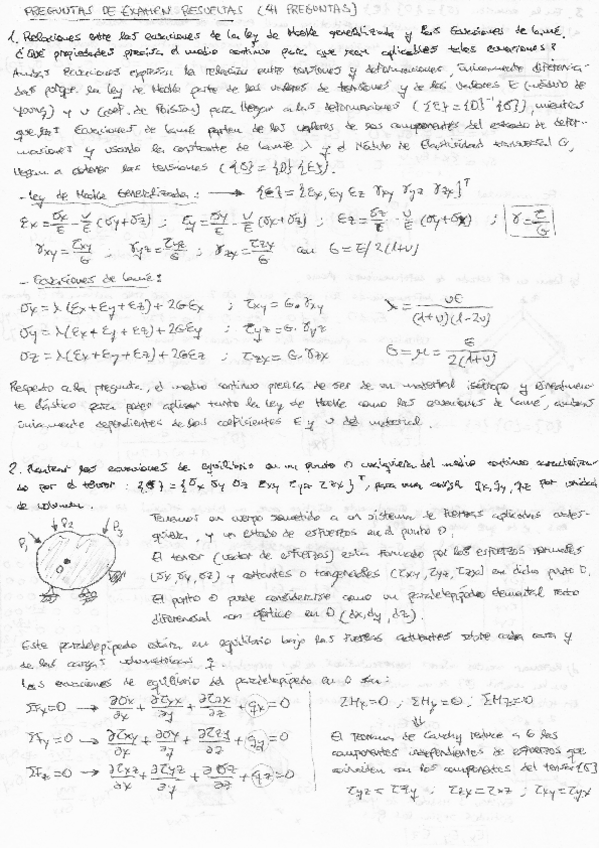 PREGUNTAS DE EXAMEN RESUELTAS (41 PREGUNTAS)
1. Relaciones entre las ecuaciones de la ley de Hooke generalizada y las Ecuaciones de Lamé.
¿Qué propiedades precisa el medio continuo para que sean aplicables tales ecuaciones?
Ambas ecuaciones expresan la relación entre tensiones y deformaciones, únicamente diferencia-
das porque la ley de Hooke parte de los valores de tensiones y de los valores E (módulo de
Young) y ν (coef. de Poisson) para llegar a las deformaciones ({ε}=[D]⁻¹{σ}), mientras
que las Ecuaciones de Lamé parten de los valores de las componentes del estado de defor-
maciones y usando la constante de Lamé λ y el Módulo de Elasticidad transversal G,
llegan a obtener las tensiones ({σ}=[D]{ε}).
- Ley de Hooke Generalizada: → {ε}={εx, εy εz γxy γyz γzx}ᵀ
εx=σx/E - ν/E (σy+σz) ; εy=σy/E - ν/E (σx+σz) ; εz=σz/E - ν/E (σy+σx) ; γ=τ/G
γxy=τxy/G ; γyz=τyz/G ; γzx=τzx/G con G=E/2(1+ν)
- Ecuaciones de Lamé:
σx=λ(εx+εy+εz)+2Gεx ; τxy=G·γxy λ=νE/(1+ν)(1-2ν)
σy=λ(εx+εy+εz)+2Gεy ; τyz=G·γyz
σz=λ(εx+εy+εz)+2Gεz ; τzx=G·γzx G=μ=E/2(1+ν)
Respecto a la pregunta, el medio continuo precisa de ser de un material isótropo y linealmen-
te elástico para poder aplicar tanto la ley de Hooke como las ecuaciones de Lamé, ambas
únicamente dependientes de los coeficientes E y ν del material.
2. Plantear las ecuaciones de equilibrio en un punto O cualquiera del medio continuo caracteriza-
do por el tensor: {σ}={σx σy σz τxy τyz τzx}ᵀ, para una carga qx, qy, qz por unidad
de volumen.
P1 P2 P3
O
Tenemos un cuerpo sometido a un sistema de fuerzas aplicadas cuales-
quiera, y un estado de esfuerzos en el punto O.
El tensor (vector de esfuerzos) estará formado por los esfuerzos normales
(σx, σy, σz) y cortantes o tangenciales (τxy, τyz, τzx) en dicho punto O.
El punto O puede considerarse como un paralelepípedo elemental recto
diferencial con vértice en O (dx, dy, dz).
Este paralelepípedo estará en equilibrio bajo las fuerzas actuantes sobre cada cara y
de las cargas volumétricas q
Las ecuaciones de equilibrio del paralelepípedo en O son:
ΣFx=0 → ∂σx/∂x + ∂τyx/∂y + ∂τzx/∂z + qx = 0
ΣFy=0 → ∂τxy/∂x + ∂σy/∂y + ∂τzy/∂z + qy = 0
ΣFz=0 → ∂τxz/∂x + ∂τyz/∂y + ∂σz/∂z + qz = 0
ΣMx=0 ; ΣMy=0 ; ΣMz=0
⇓
El Teorema de Cauchy reduce a 6 las
componentes independientes de esfuerzos que
coinciden con las componentes del tensor {σ}
τyz=τzy ; τzx=τxz ; τxy=τyx